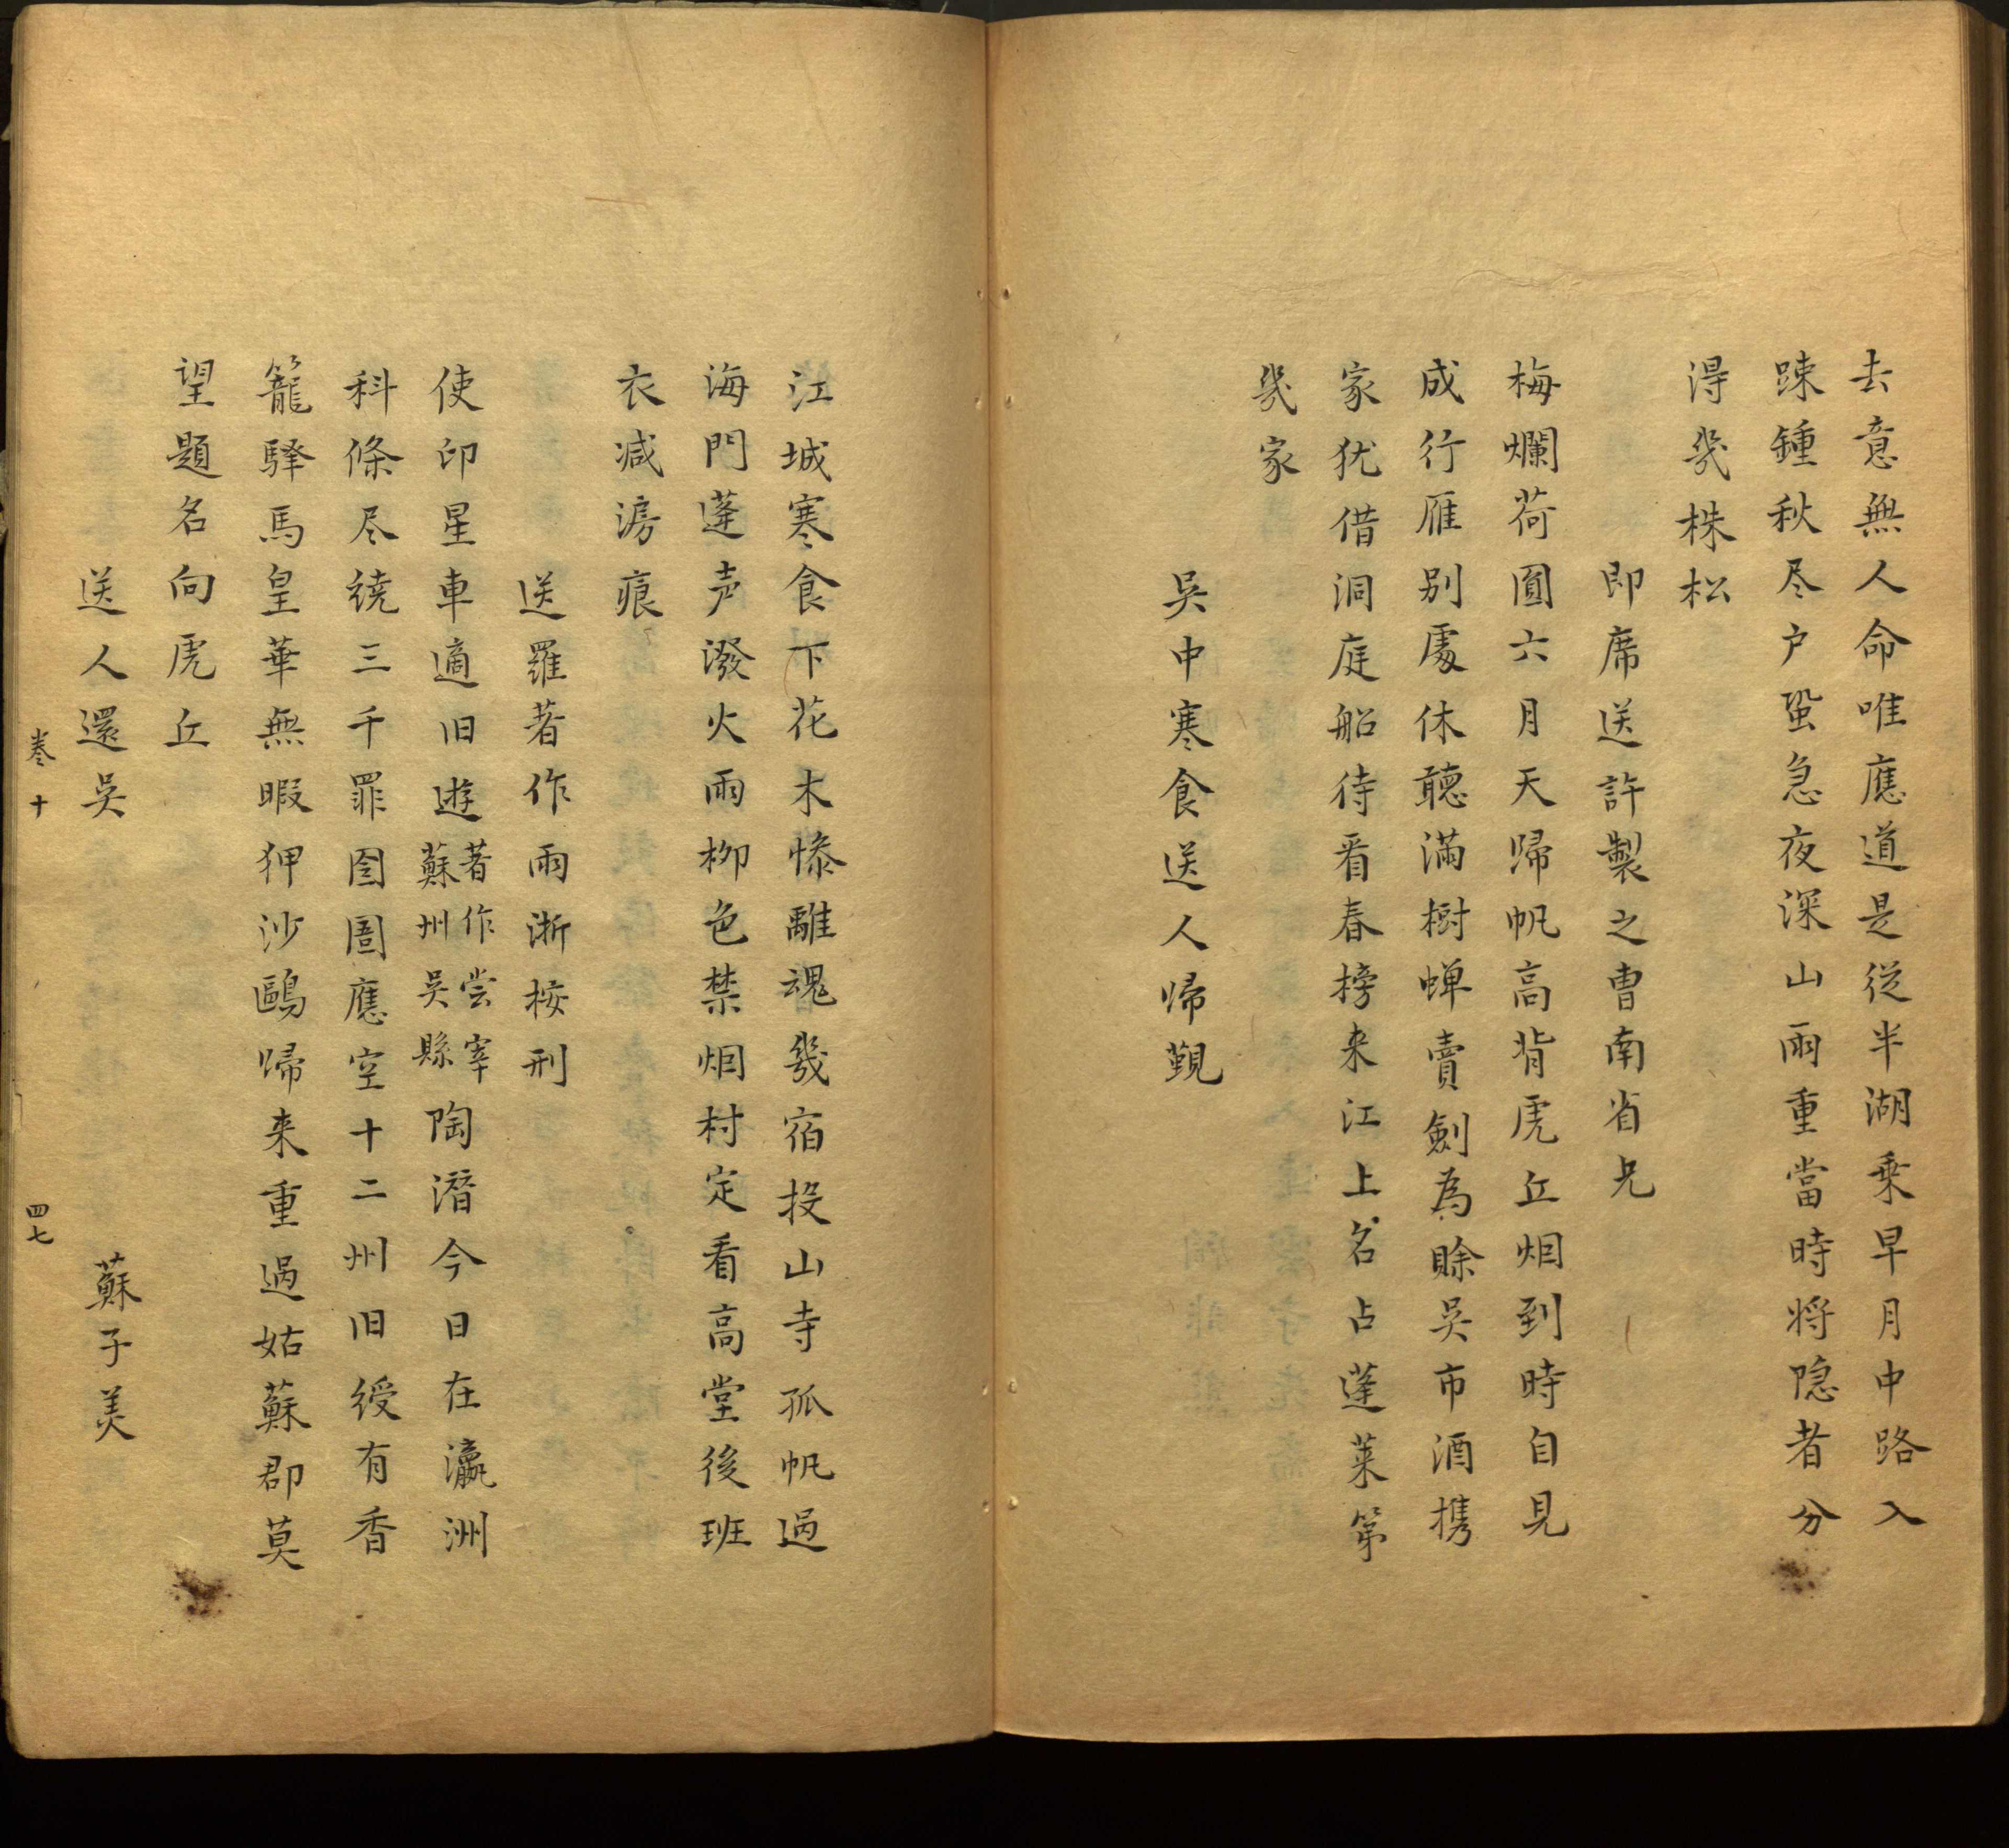 去意無人命唯應道是從半湖乗早月中路入
踈鍾秋尽户蛩急夜深山雨重當時将隐者分
得㡬株松
即席送許製之曺南省兄
梅爛荷圎六月天歸帆高背虎丘烟到時自見
成行雁别處休聽滿樹蝉賣劍為賖吳市酒携
家犹借洞庭船待看春榜来江上名占蓬莱第
㡬家
吳中寒食送人歸覲
江城寒食下花木惨離魂㡬宿投山寺孤帆過
海門蓬声潑火雨栁色禁烟村定看高堂後班
衣减淚痕
送羅著作兩浙桉刑
使印星車適旧遊著作尝宰蘇州吳縣陶潛今日在瀛洲
科條尽繞三千罪囹圄應空十二州旧綬有香
籠驛馬皇華無暇狎沙鷗歸来重過姑蘇郡莫
望題名向虎丘
送人還吳 蘇子美
卷十 四七